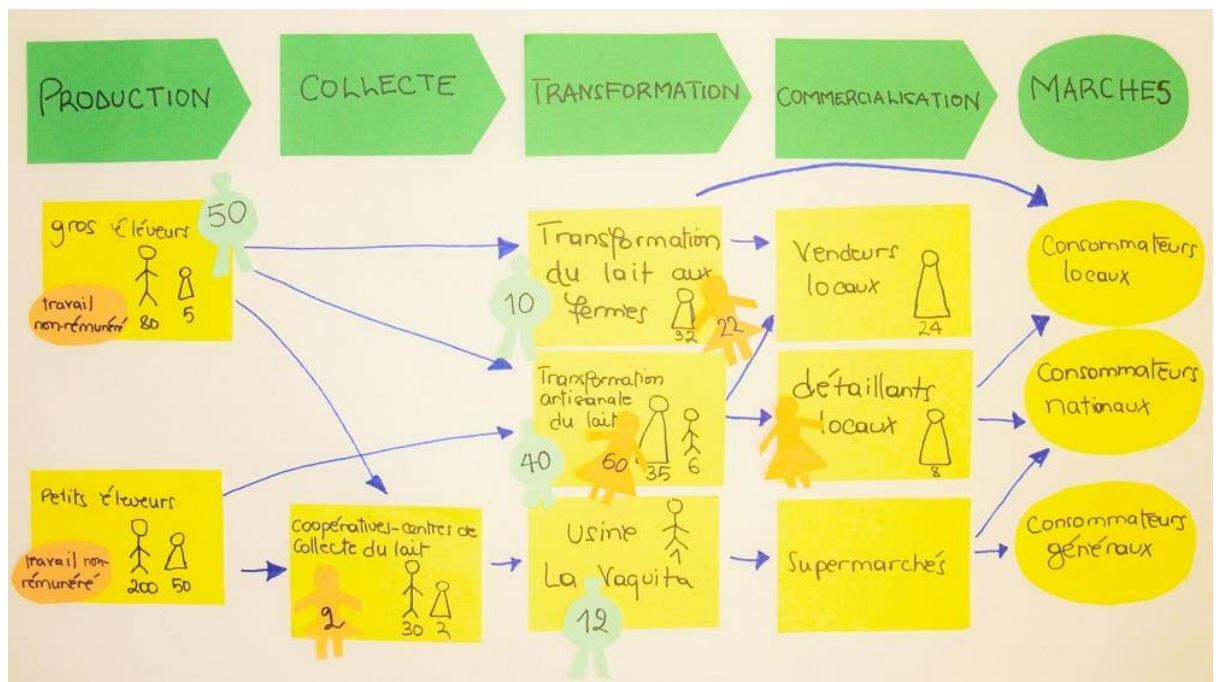 PRODUCTION
COLLECTE
TRANSFORMATION
COMMERCIALISATION
MARCHES
gros éleveurs
50
travail
non-rémunéré
80
5
Petits éleveurs
travail non-
rémunéré
200
50
Coopératives-centres de
Collecte du lait
2
30
2
Transformation
du lait aux
fermes
10
32
22
Transformation
artisanale
du lait
40
60
35
6
Usine
1
La Vaquita
12
Vendeurs
locaux
24
détaillants
locaux
8
Supermarchés
Consommateurs
locaux
Consommateurs
nationaux
Consommateurs
généraux